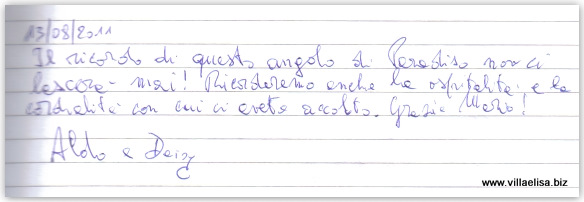 13/08/2011
Il ricordo di questo angolo di Paradiso non ci
lascerà mai! Ricorderemo anche la ospitalità e la
cordialità con cui ci avete accolto. Grazie
Aldo e Deisy
www.villaelisa.biz